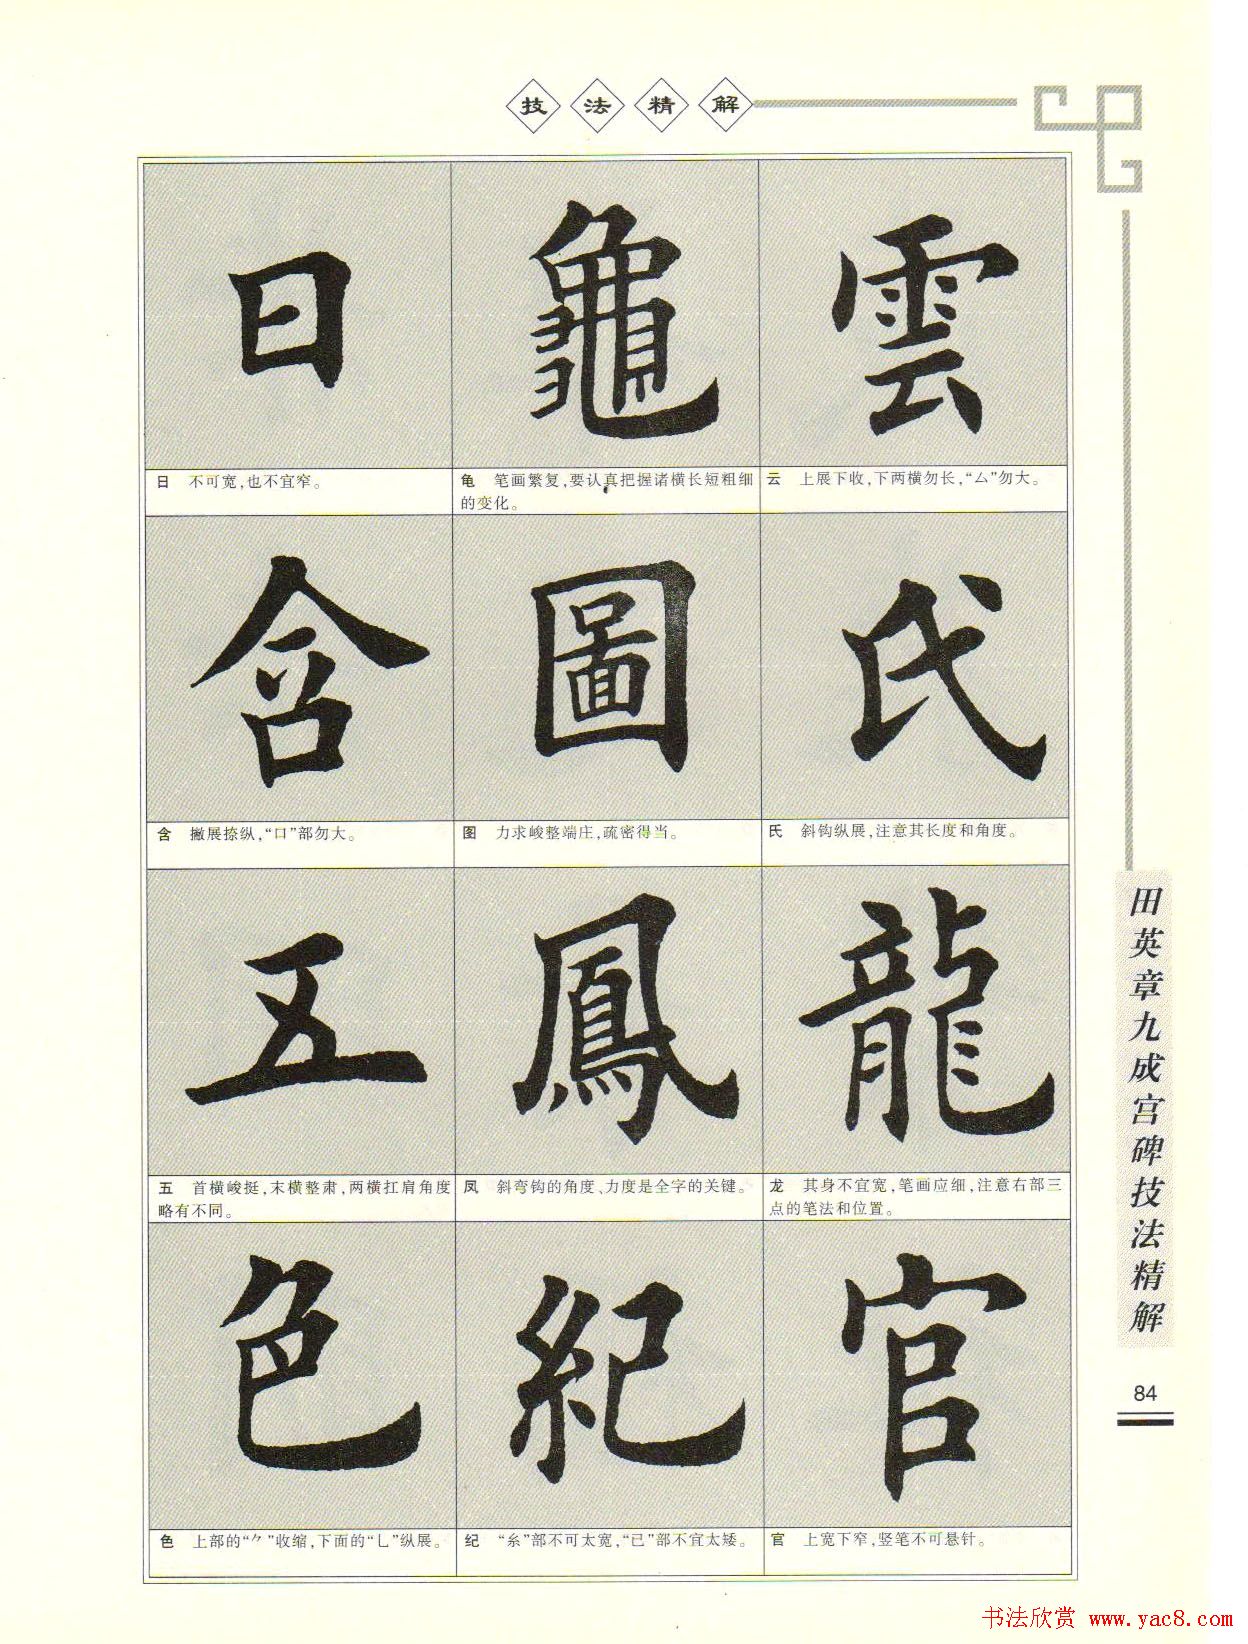 技法精解
日
龜
雲
日 不可宽,也不宜窄。
龟 笔画繁复,要认真把握诸横长短粗细
的变化。
云 上展下收,下两横勿长,“厶”勿大。
含
圖
氏
含 撇展捺纵,“口”部勿大。
图 力求峻整端庄,疏密得当。
氏 斜钩纵展,注意其长度和角度。
五
鳳
龍
五 首横峻挺,末横整肃,两横扛肩角度
略有不同。
凤 斜弯钩的角度、力度是全字的关键。
龙 其身不宜宽,笔画应细,注意右部三
点的笔法和位置。
色
紀
官
色 上部的“⺈”收缩,下面的“乚”纵展。
纪 “糸”部不可太宽,“已”部不宜太矮。
官 上宽下窄,竖笔不可悬针。
田英章九成宫碑技法精解
84
书法欣赏 www.yac8.com